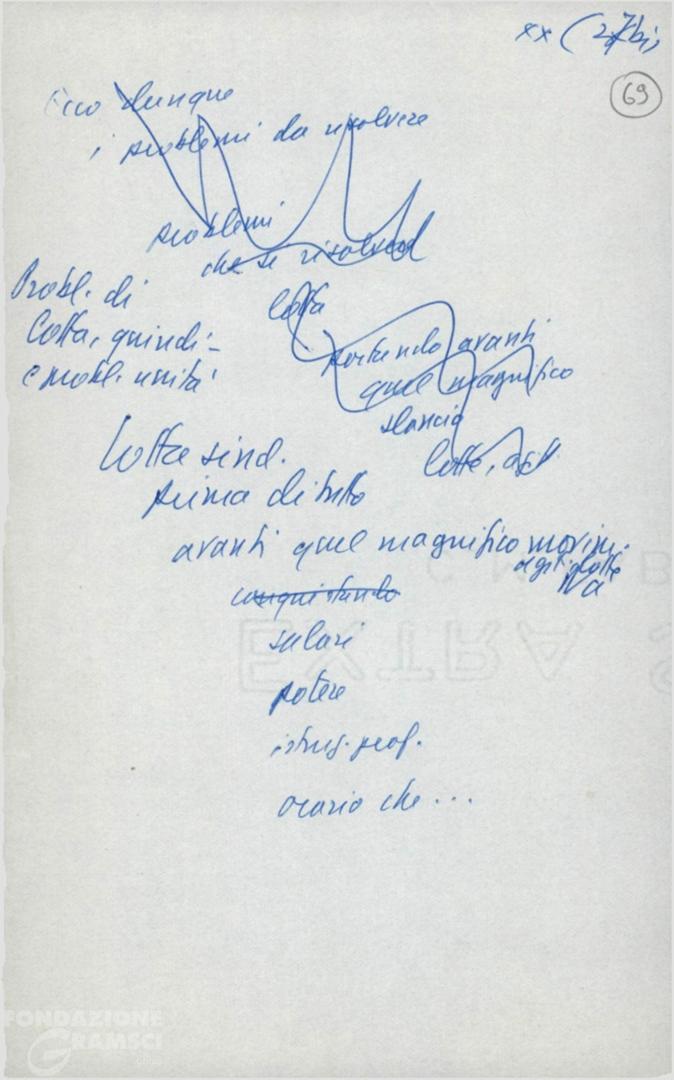 xx (27 bis
69
Ecco dunque
i problemi da risolvere
problemi
che se risolvend
lotta
Probl. di
lotta, quindi -
e probl. unità
portando avanti
quel magnifico
slancio
lotte,
Lotta sind.
prima di tutto
avanti quel magnifico movim.
di lotte
conquistando
salari
potere
istruz. prof.
orario che ...
EXTRA
FONDAZIONE
GRAMSCI